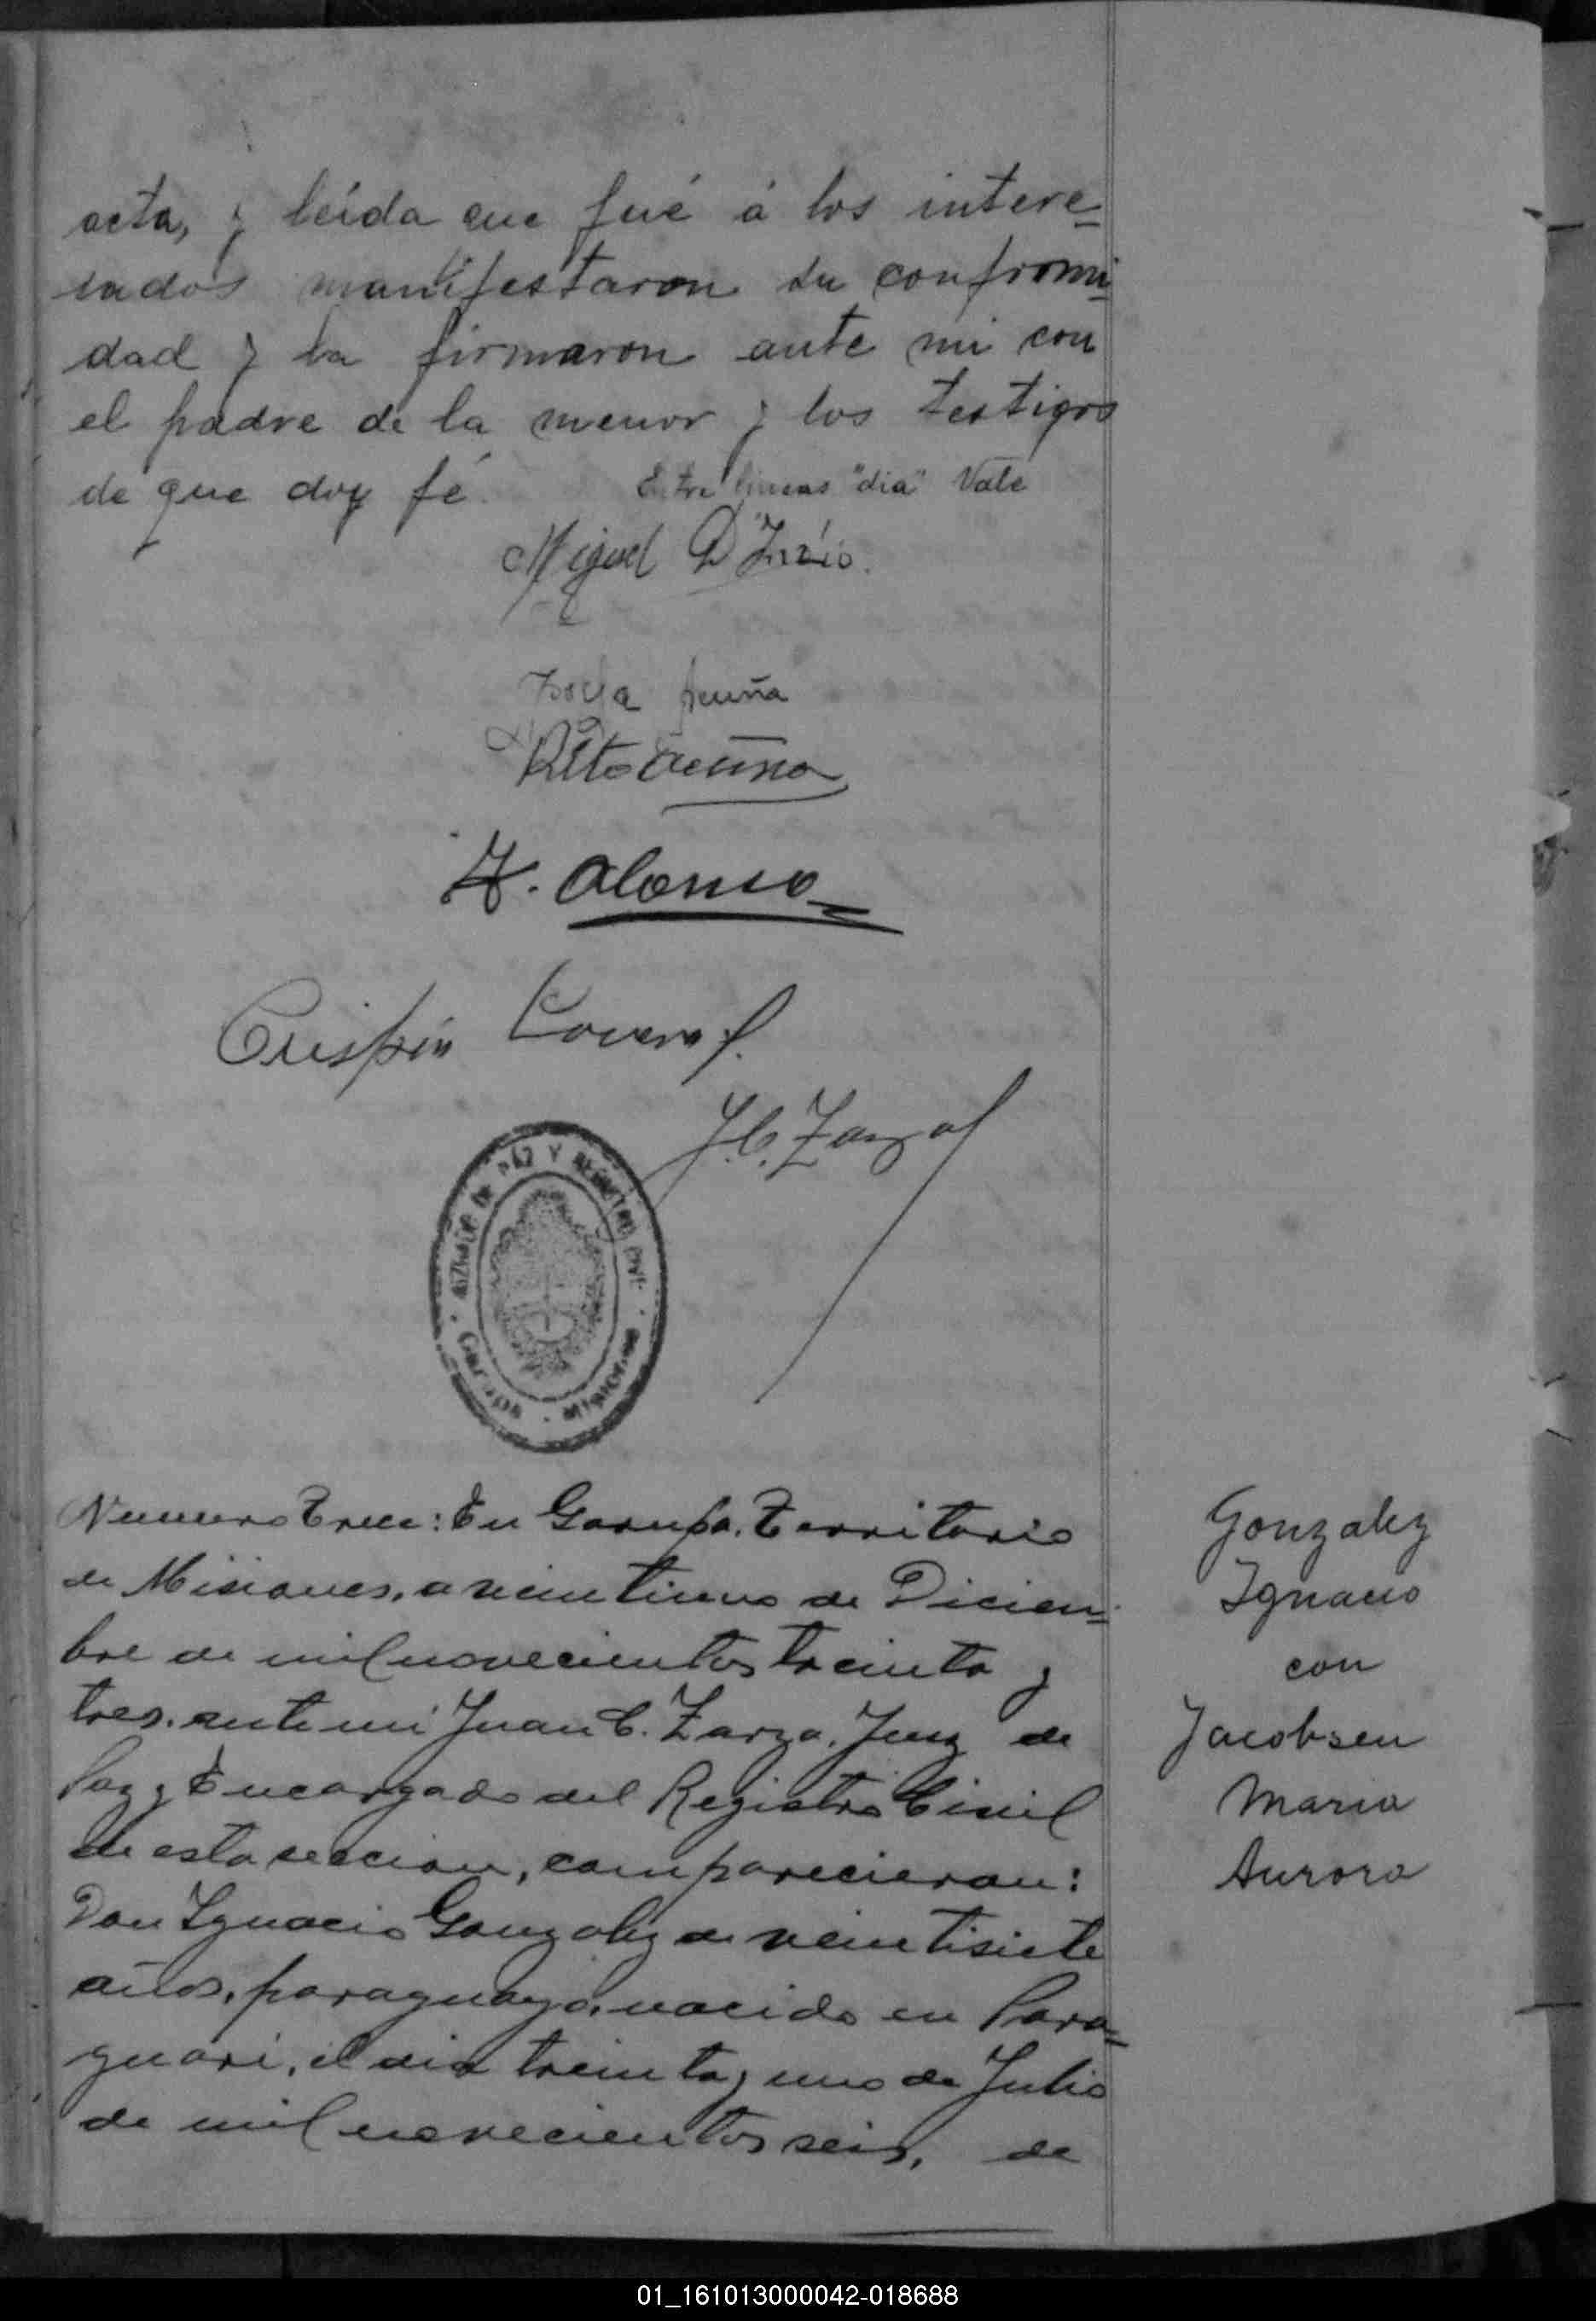 acta, y leída que fué á los intere=
sados manifestaron su confromi=
dad y la firmaron ante mi con
el padre de la menor y los testigos
de que doy fé. Entre lineas "dia" Vale
Miguel
Acuña
Rito Acuña
Alonso
Crispín
J. C. Zarza
JUZGADO DE PAZ Y REGISTRO CIVIL
GARUPA · MISIONES
Numero Trece: En Garupa, Territorio
de Misiones, a veintiuno de Diciem=
bre de mil novecientos treinta y
tres, ante mi Juan C. Zarza, Juez de
Paz y Encargado del Registro Civil
de esta seccion, comparecieron:
Don Ignacio Gonzalez de veintisiete
años, paraguayo, nacido en Para=
guari, el dia treinta y uno de Julio
de mil novecientos seis, de
Gonzalez
Ignacio
con
Jacobsen
Maria
Aurora
01_161013000042-018688